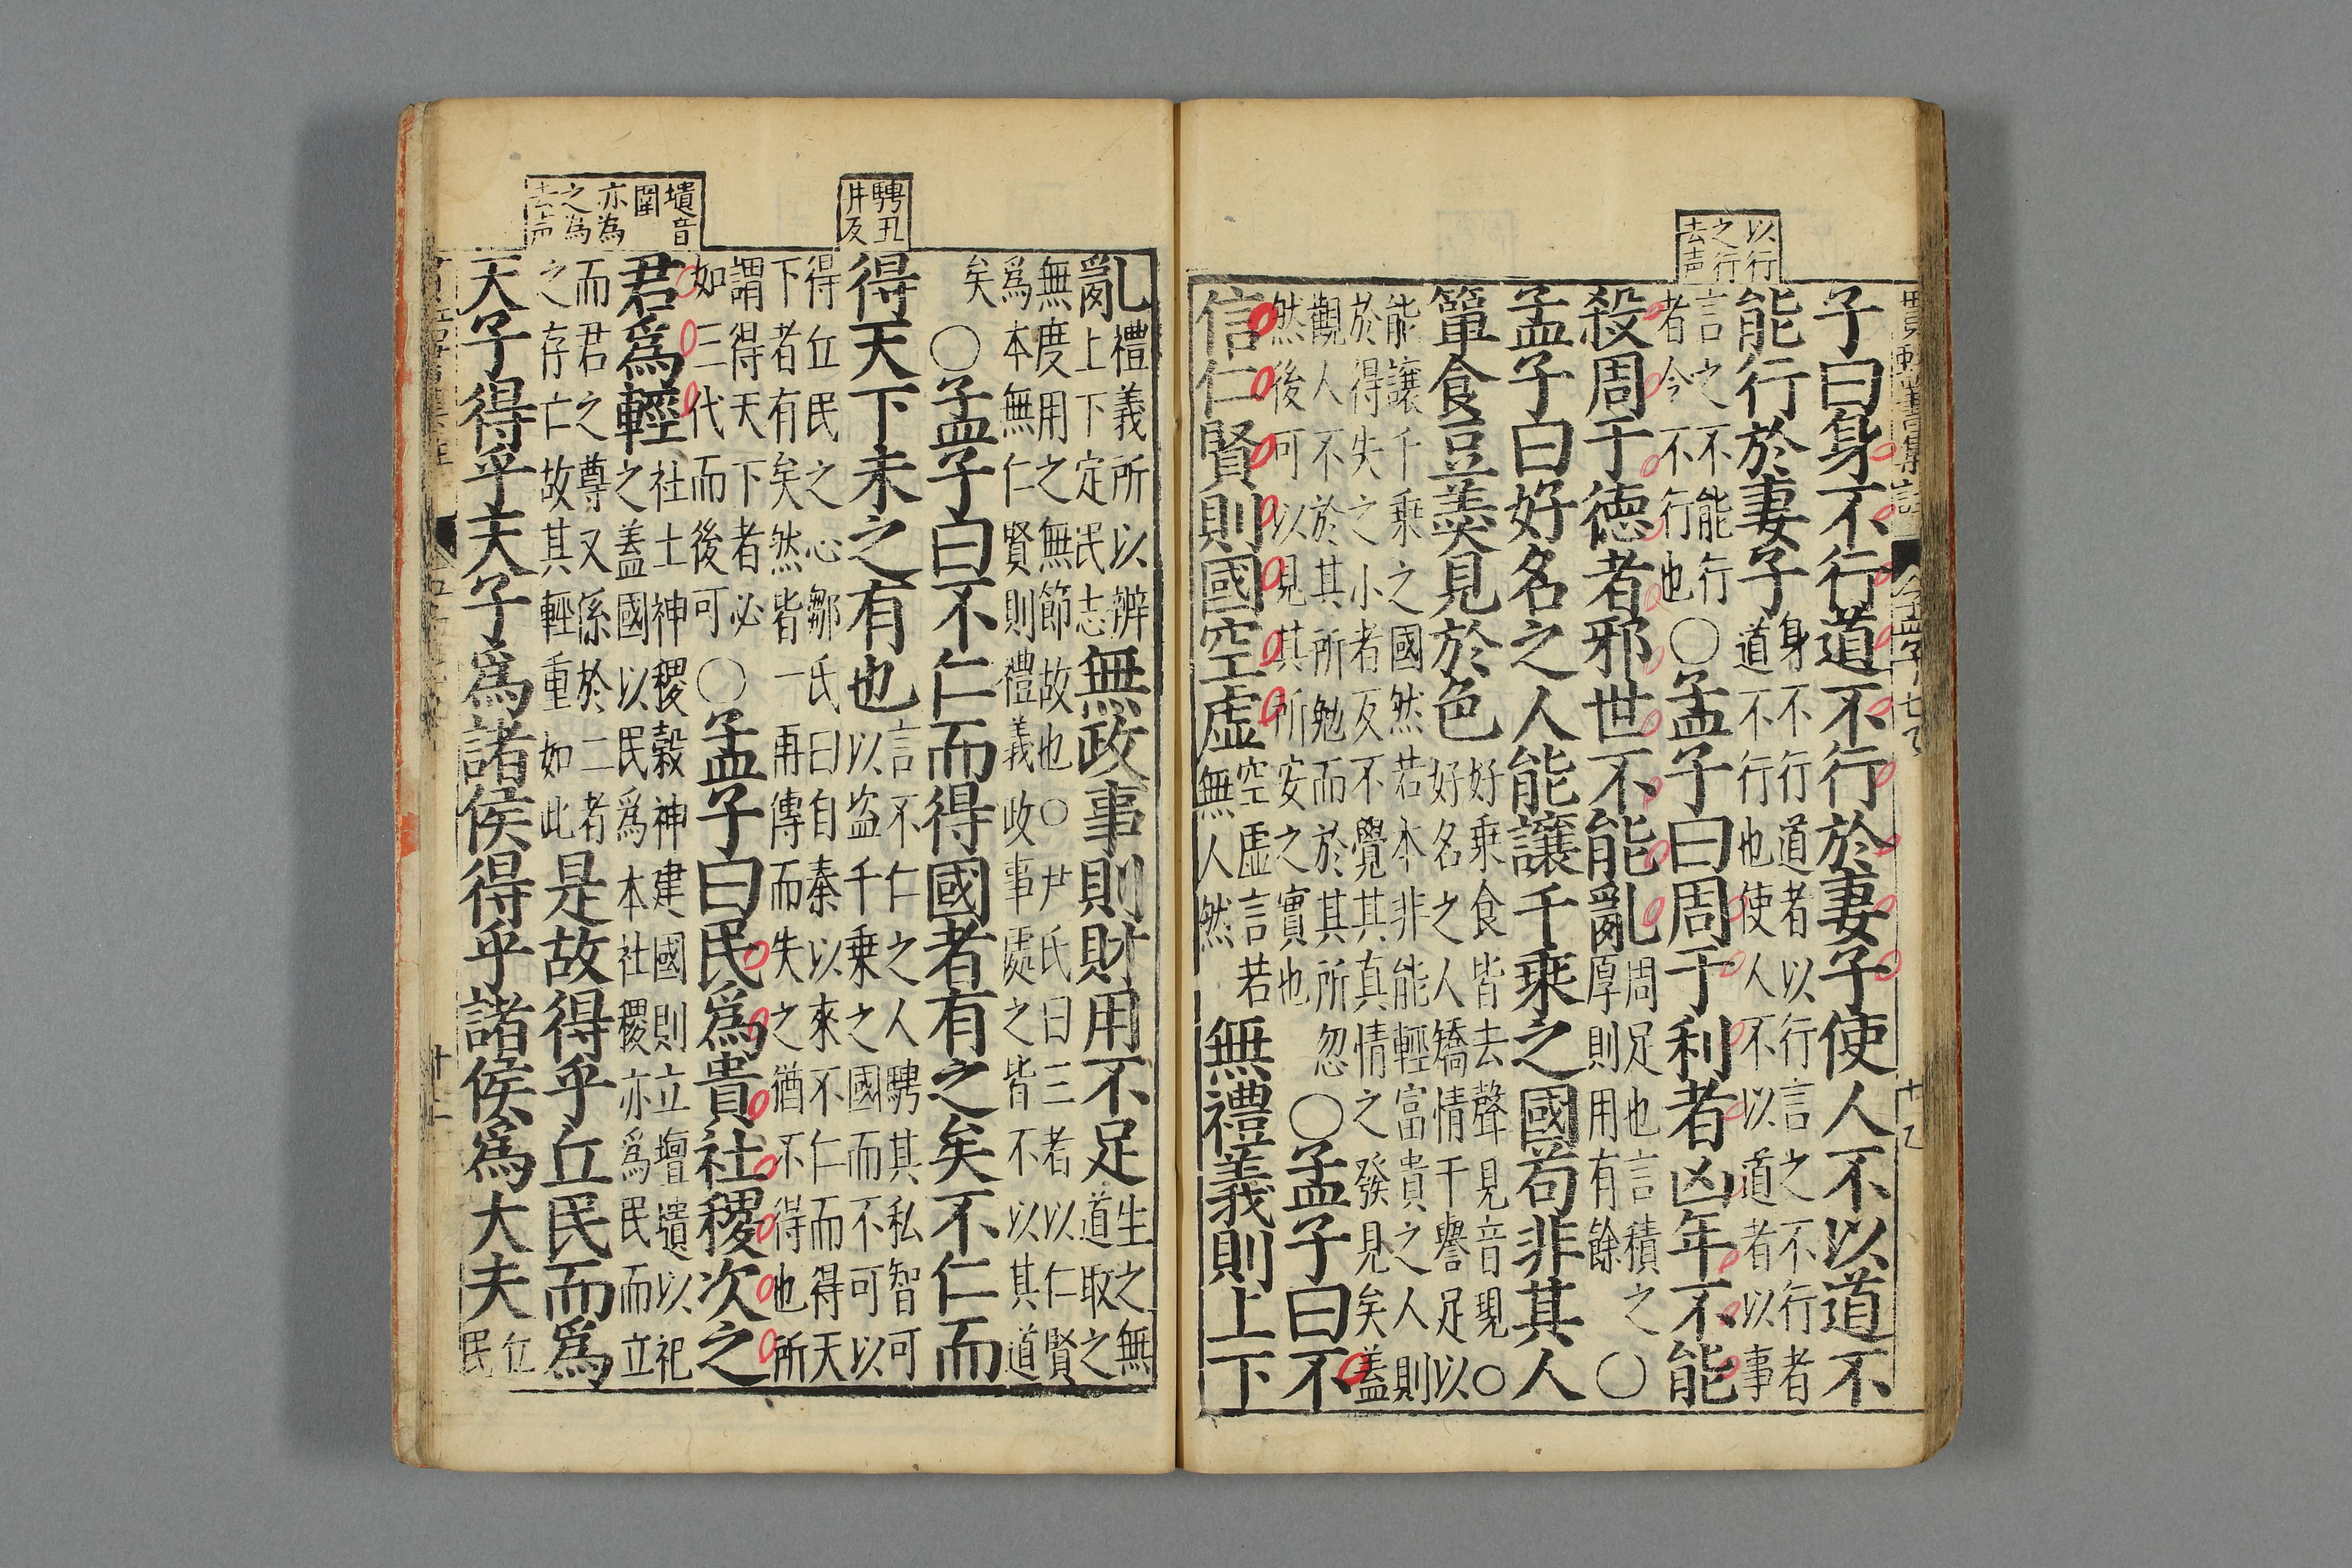 以行
之行
去声
子曰身不行道不行於妻子使人不以道不
能行於妻子
身不行道者以行言之不行者
道不行也使人不以道者以事
言之不能行
者今不行也
○孟子曰周于利者凶年不能
殺周于德者邪世不能亂
周足也言積之
厚則用有餘
○
孟子曰好名之人能讓千乘之國苟非其人
簞食豆羮見於色
好乘食皆去聲見音現○
好名之人矯情干譽足以
能讓千乘之國然若本非能輕富貴之人則
於得失之小者反不覺其真情之發見矣蓋
觀人不於其所勉而於其所忽
然後可以見其所安之實也
○孟子曰不
信仁賢則國空虛
空虛言若
無人然
無禮義則上下
騁丑
井反
壝音
圍
亦為
之為
去声
亂
禮義所以辨
上下定民志
無政事則財用不足
生之無
道取之
無度用之無節故也○尹氏曰三者以仁賢
爲本無仁賢則禮義政事處之皆不以其道
矣
○孟子曰不仁而得國者有之矣不仁而
得天下未之有也
言不仁之人騁其私智可
以盗千乘之國而不可以
得丘民之心鄒氏曰自秦以來不仁而得天
下者有矣然皆一再傳而失之猶不得也所
謂得天下者必
如三代而後可
○孟子曰民爲貴社稷次之
君爲輕
社土神稷穀神建國則立壇壝以祀
之蓋國以民爲本社稷亦爲民而立
而君之尊又係於二者
之存亡故其輕重如此
是故得乎丘民而爲
天子得乎天子爲諸侯得乎諸侯爲大夫
丘
民